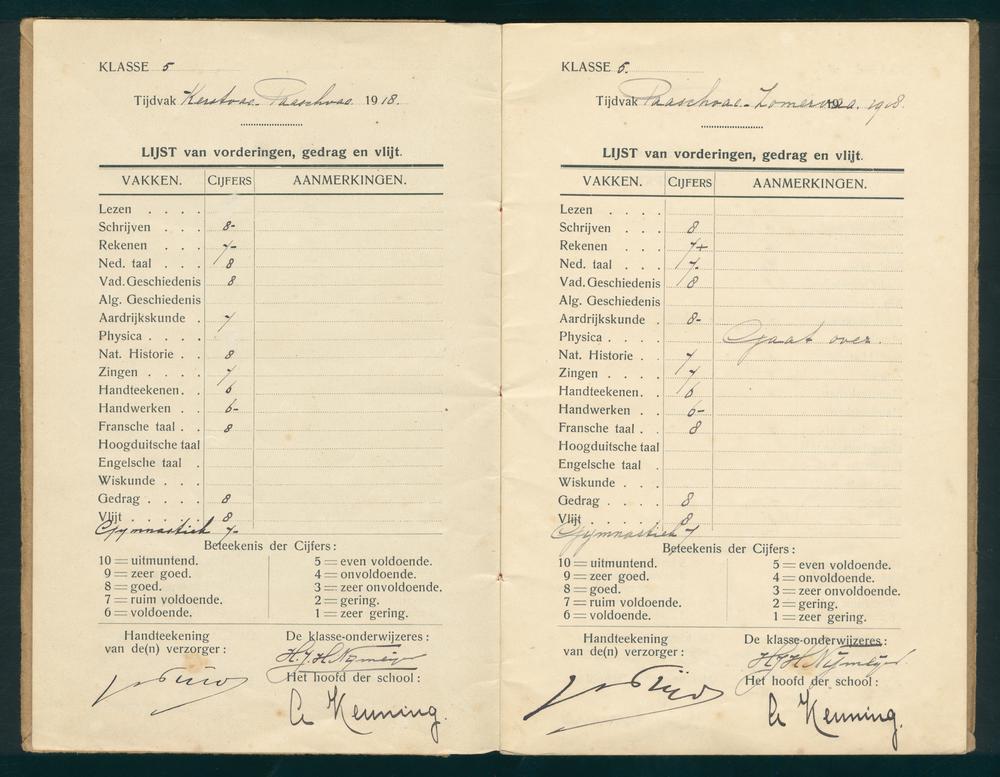 KLASSE 5
Tijdvak Kerstvac. - Paaschvac 1918.
LIJST van vorderingen, gedrag en vlijt.
VAKKEN. CIJFERS AANMERKINGEN.
Lezen . . . .
Schrijven . . . 8-
Rekenen . . . 7-
Ned. taal . . . 8
Vad. Geschiedenis 8
Alg. Geschiedenis
Aardrijkskunde . 7
Physica . . . .
Nat. Historie . . 8
Zingen . . . . 7
Handteekenen . . 6
Handwerken . . 6-
Fransche taal . . 8
Hoogduitsche taal
Engelsche taal .
Wiskunde . . .
Gedrag . . . . 8
Vlijt . . . . . 8
Gymnastiek 7-
Beteekenis der Cijfers:
10 = uitmuntend.
9 = zeer goed.
8 = goed.
7 = ruim voldoende.
6 = voldoende.
5 = even voldoende.
4 = onvoldoende.
3 = zeer onvoldoende.
2 = gering.
1 = zeer gering.
Handteekening
van de(n) verzorger:
De klasse-onderwijzeres:
H.J.H. Nijmeijer
Het hoofd der school:
Kenning.
KLASSE 5.
Tijdvak Paaschvac - Zomervaca. 1918.
LIJST van vorderingen, gedrag en vlijt.
VAKKEN. CIJFERS AANMERKINGEN.
Lezen . . . .
Schrijven . . . 8
Rekenen . . . 7+
Ned. taal . . . 7.
Vad. Geschiedenis 8
Alg. Geschiedenis
Aardrijkskunde . 8-
Physica . . . . Gaat over.
Nat. Historie . . 7
Zingen . . . . 7
Handteekenen . . 6
Handwerken . . 6-
Fransche taal . . 8
Hoogduitsche taal
Engelsche taal .
Wiskunde . . .
Gedrag . . . . 8
Vlijt . . . . . 8
Gymnastiek 7
Beteekenis der Cijfers:
10 = uitmuntend.
9 = zeer goed.
8 = goed.
7 = ruim voldoende.
6 = voldoende.
5 = even voldoende.
4 = onvoldoende.
3 = zeer onvoldoende.
2 = gering.
1 = zeer gering.
Handteekening
van de(n) verzorger:
De klasse-onderwijzeres:
H.J.H. Nijmeijer
Het hoofd der school:
Kenning.